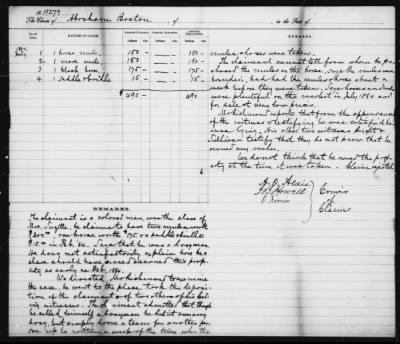 No. 18279
The Claim of Abraham Boston, of , in the State of
No. of Item. NATURE OF CLAIM. AMOUNT CLAIMED. AMOUNT ALLOWED. AMOUNT DISALLOWED. REMARKS.
1 1 horse mule, 150 — 150 —
2 1 mare mule, 150 — 150 —
3 1 black horse 175 — 175 —
4 1 saddle & bridle 15 — 15 —
$490 — 490 —
mules & horses were taken.
The claimant cannot tell from whom he pur-
chased the mules or the horse. Says the mules were
branded, had had the mules & horse about a
week before they were taken. Says horses and mules
were plentiful on the in July 1864 and
for sale at very low prices.
reports that from the appearance
of the witness & testifying he was satisfied he
was lying. His other two witnesses &
Sullivan testify that they do not know that he
owned any mules.
We do not think that he owned the prop-
erty at the time it was taken. Claim rejected
A. O. Aldis
J. B. Howell
O. Ferriss
Comrs
of
Claims
REMARKS.
The claimant is a colored man, was the slave of
Mrs. he claims to have two mules worth
$300 one horse worth 175. & a saddle & bridle
$15. in Feb. 64. Says that he was a drayman
He does not satisfactorily explain how he a
slave should have earned & owned this prop-
erty as early as Feb. 1864.
We directed to examine
the case. he went to the place, took the deposi-
tion of the claimant & of two others of his lead-
ing witnesses. The claimant admitted that though
he called himself a drayman he did not own any
dray, but simply drove a team for another per-
son up to within a week of the time when the